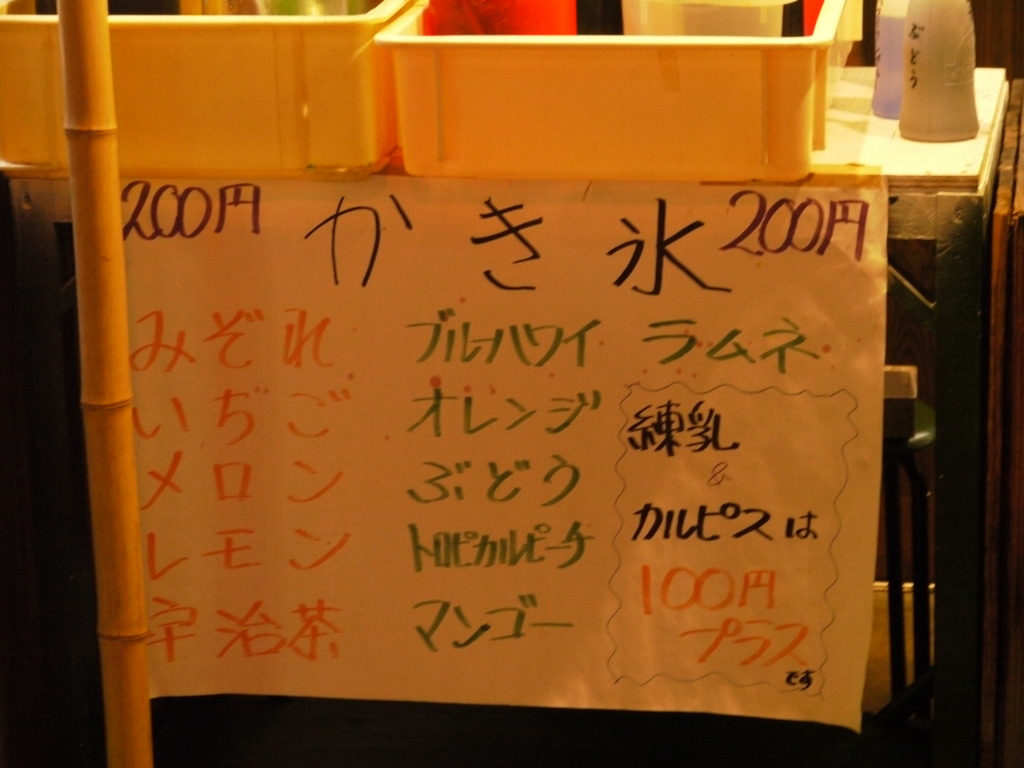 ぶどう
200円 かき氷 200円
みぞれ ブルーハワイ ラムネ
いちご オレンジ
メロン ぶどう
レモン トロピカルピーチ
宇治茶 マンゴー
練乳
&
カルピスは
100円
プラス
です